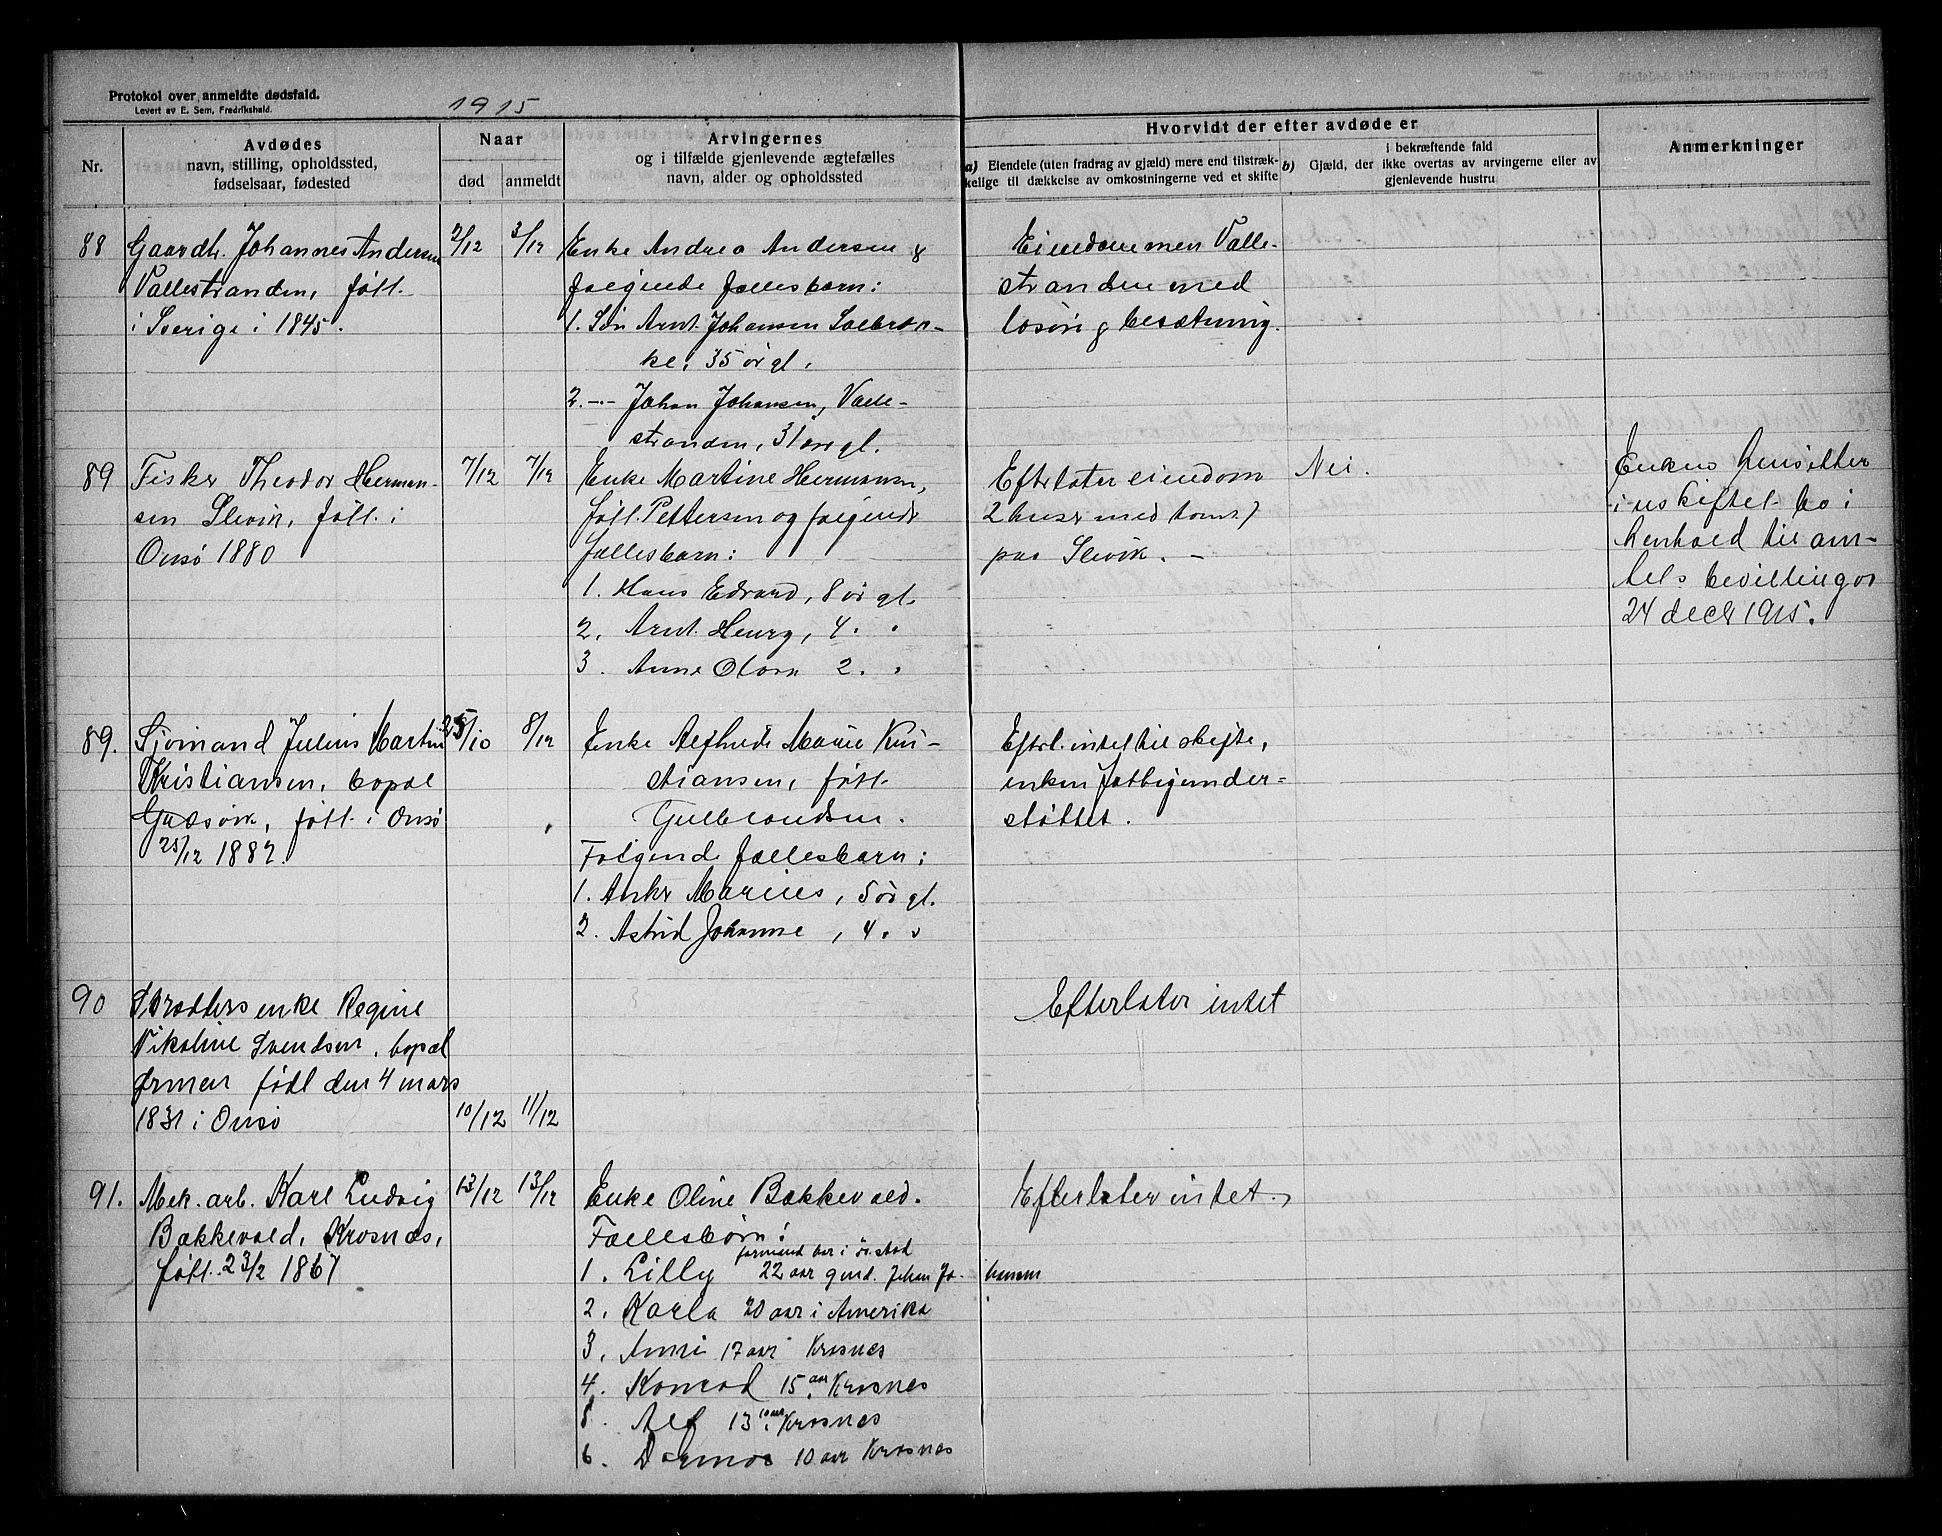 Protokol over anmeldte dødsfald.
Levert av E. Sem, Fredrikshald.
1915
Nr.
Avdødes
navn, stilling, opholdssted,
fødselsaar, fødested
Naar
død
anmeldt
Arvingernes
og i tilfælde gjenlevende ægtefælles
navn, alder og opholdssted
Hvorvidt der efter avdøde er
a) Eiendele (uten fradrag av gjæld) mere end tilstræk-
kelige til dækkelse av omkostningerne ved et skifte
i bekræftende fald
b) Gjæld, der ikke overtas av arvingerne eller av
gjenlevende hustru
Anmerkninger
88
Gaardbr. Johannes Andersen
Vallestranden, født
i Sverige i 1845.
2/12
3/12
Enke Andrea Andersen &
følgende fællesbarn:
1. Søn Arnt Johansen Solbræk-
ke, 35 år gl.
2. -"- Johan Johansen, Valle-
stranden, 31 år gl.
Eiendommen Valle-
stranden med
løsøre & besætning.
89
Fisker Theodor Herman-
sen Slevik, født i
Onsø 1880
7/12
7/12
Enke Martine Hermansen,
født Pettersen og følgende
fællesbarn:
1. Hans Edvard, 8 år gl.
2. Arnt Henry, 4 " "
3. Anne Olava 2 " "
Efterlater eiendom
2 huser med tomt
paa Slevik. -
Nei.
Enken hensitter
i uskiftet bo i
henhold til am-
tets bevilling av
24 decbr 1915.
89.
Sjømand Julius Martin
Kristiansen, bopæl
Gudsvik, født i Onsø
25/12 1882.
25/10
8/12
Enke Alfhilde Marie Kri-
stiansen, født
Gulbrandsen.
Følgende fællesbarn:
1. Anker Marius, 5 år gl.
2. Astrid Johanne, 4 " "
Efterl. intet til skifte,
enken fattigunder-
støttet.
90
Skrædders enke Regine
Nikoline Svendsen, bopæl
Ørmen født den 4 mars
1831 i Onsø
10/12
11/12
Efterlater intet
91.
Mek. arb. Karl Ludvig
Bakkevold, Krosnæs,
født 23/2 1867
13/12
13/12
Enke Oline Bakkevold.
Fællesbørn:
1. Lilly 22 aar gmd. Johan Jo-
hansen
2. Karla 20 aar i Amerika
3. Anni 17 aar Krosnæs
4. Konrad 15 aar Krosnæs
5. Alf 13 Krosnæs
6. Dagmar 10 aar Krosnæs
Efterlater intet.